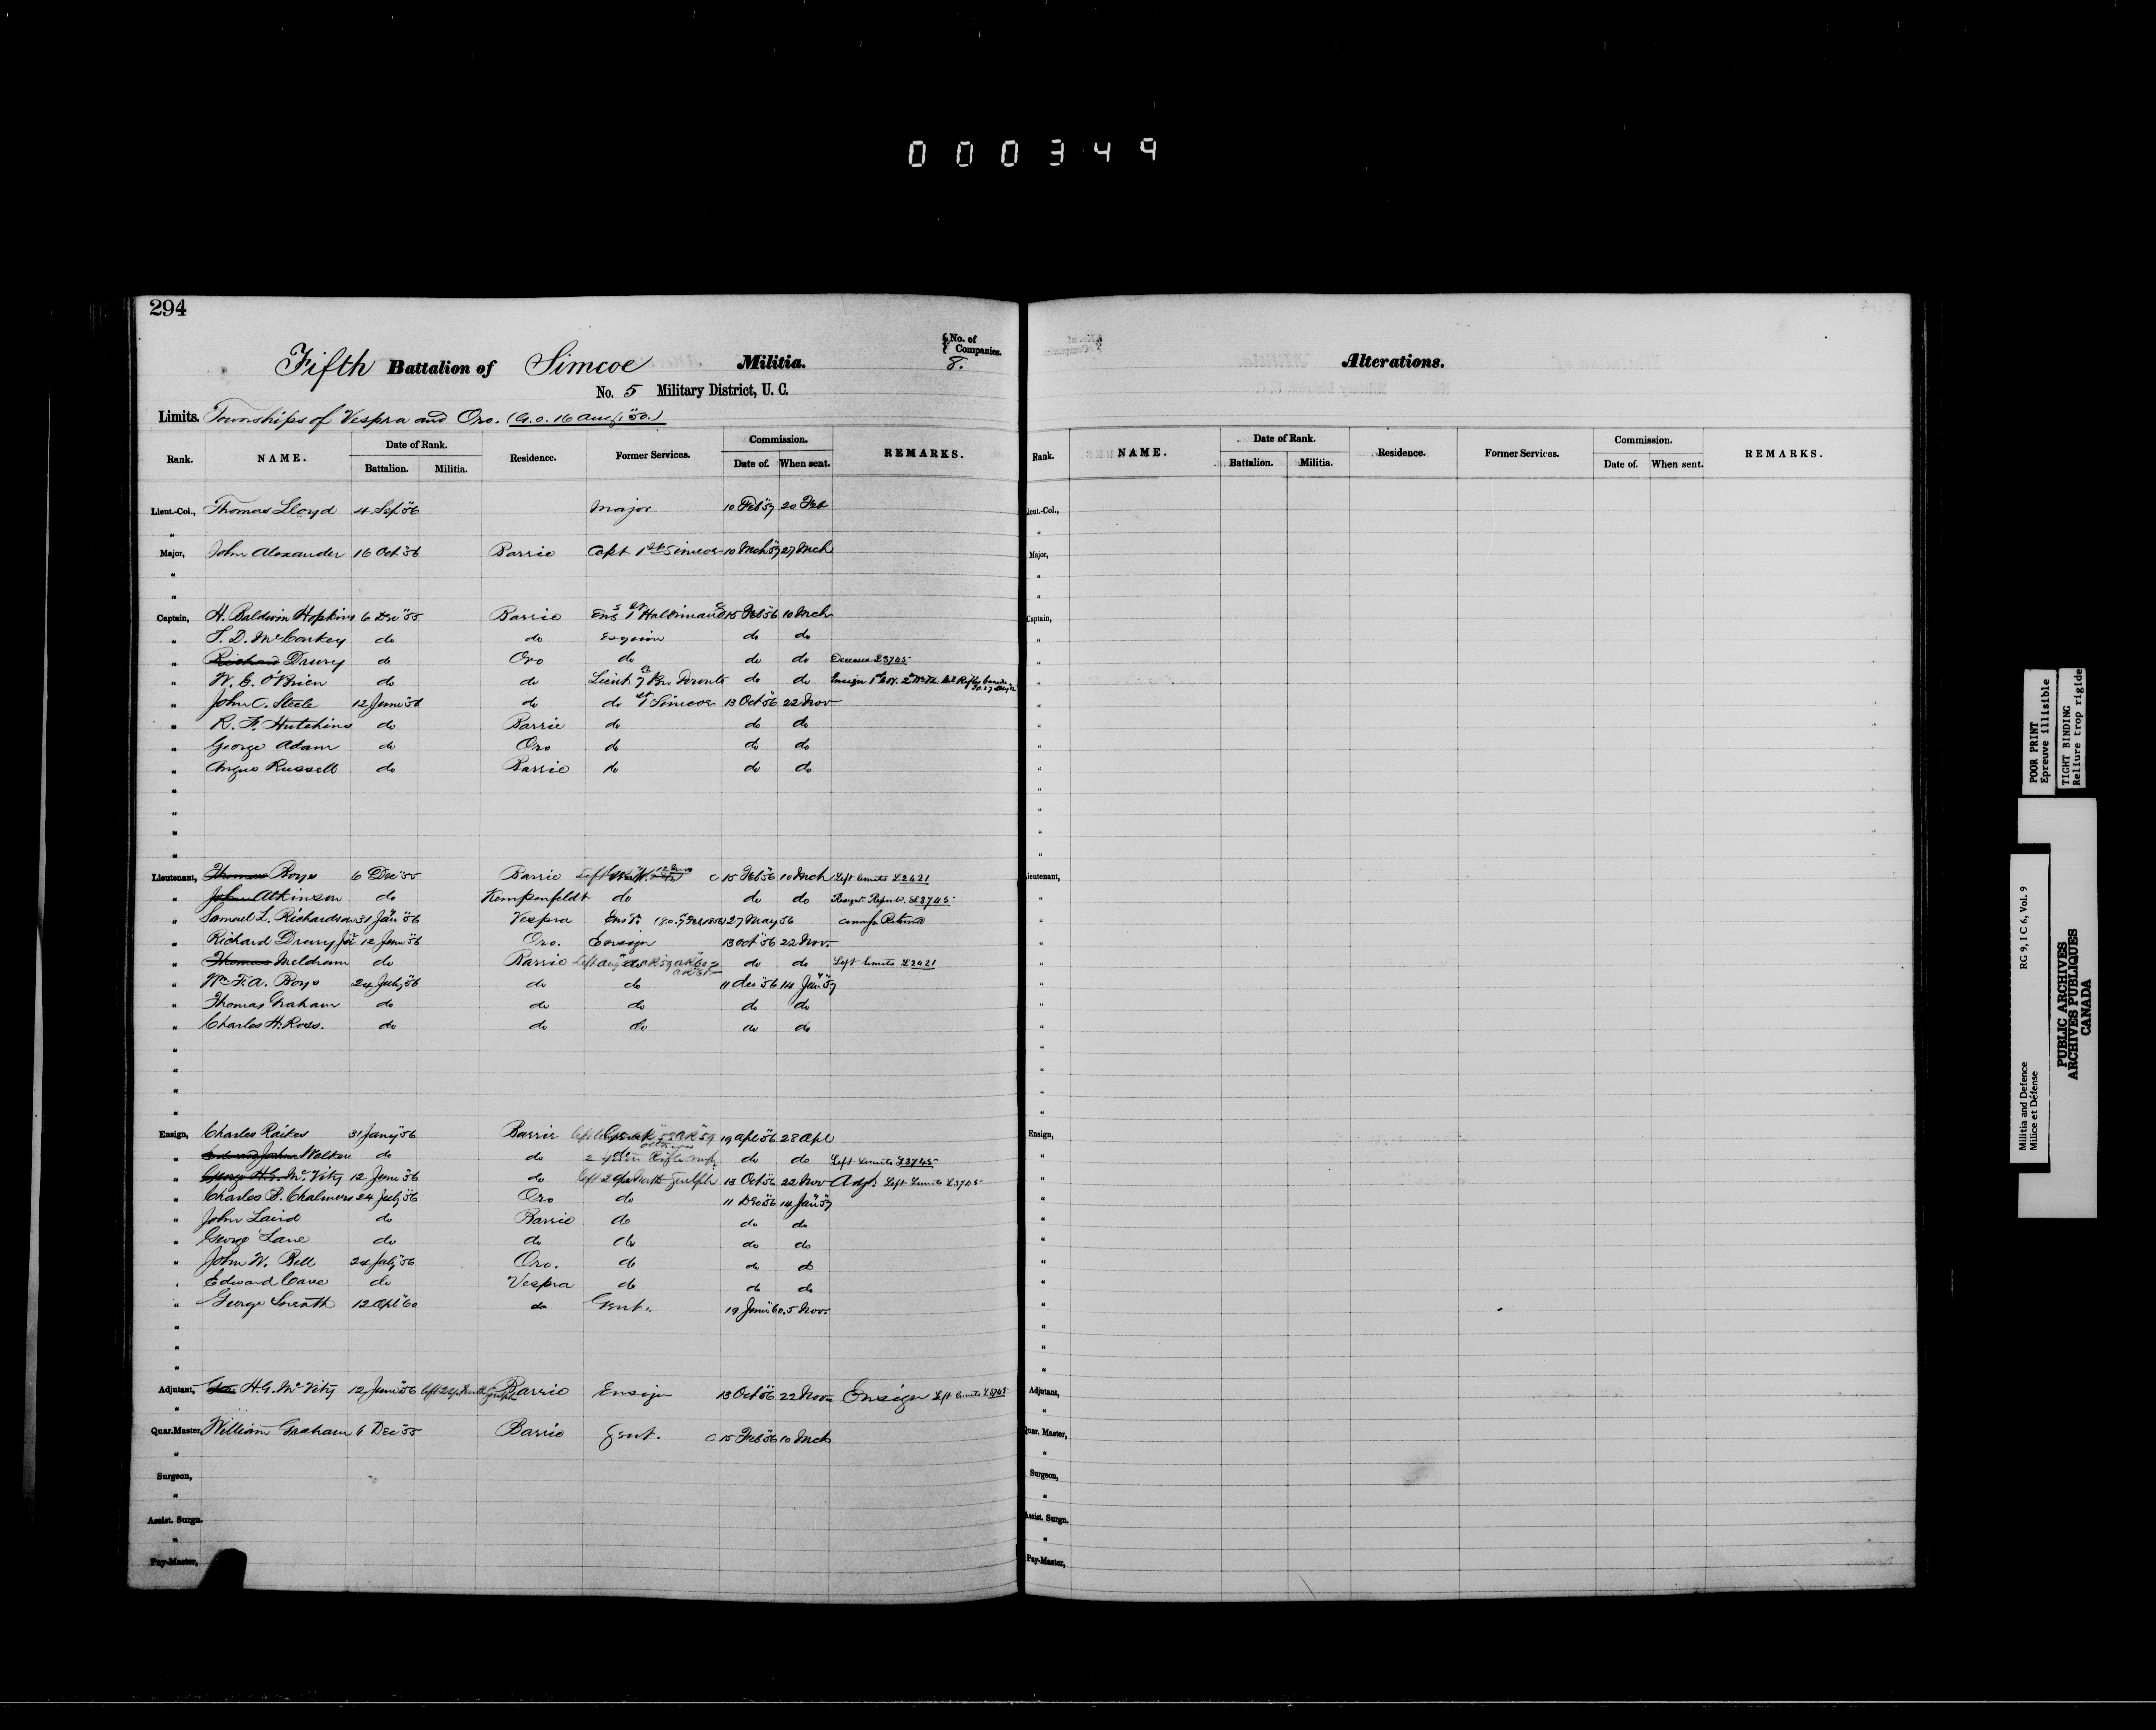 000349
294
No. of Companies.
8.
Fifth Battalion of Simcoe Militia.
No. 5 Military District, U. C.
Limits. Townships of Vespra and Oro. (G.O. 16 Aug.
Rank. NAME. Date of Rank. Battalion. Militia. Residence. Former Services. Commission. Date of. When sent. REMARKS.
Lieut.-Col., Thomas Lloyd 4 Sep 56 Major 10 Feb 57 20 Feb
"
Major, John Alexander 16 Oct 56 Barrie Capt 1st Simcoe 10 Mch 57 27 Mch
"
"
Captain, H. Baldwin Hopkins 6 Dec 55 Barrie Ens 1 Haldimand 15 Feb 56 10 Mch
" do do Esquire do do
" Richard Drury do Oro do do do Deceased £3745
" W. E. O'Brien do do Lieut 7 Bn Toronto do do Ensign
" John C. Steele 12 June 56 do do 1 Simcoe 13 Oct 56 22 Nov
" R. F. Hutchins do Barrie do do do
" George Adam do Oro do do do
" Angus Russell do Barrie do do do
"
"
"
"
Lieutenant, Thomas Boys 6 Dec 55 Barrie Left C 15 Feb 56 10 Mch Left limits £2421
" John Atkinson do Kempenfeldt do do do £3745
" Samuel L. Richardson 31 Jan 56 Vespra 27 May 56 Returned
" Richard Drury Jr 12 June 56 Oro. Ensign 13 Oct 56 22 Nov.
" Thomas Meldrum do Barrie Left do do Left limits £2421
" Wm F. A. Boys 24 July 56 do do 11 Dec 56 14 Jan 57
" Thomas Graham do do do do do
" Charles H. Ross. do do do do do
"
"
"
"
Ensign, Charles Raikes 31 Jany 56 Barrie 19 Apl 56 28 Apl
" Walker do do do do Left Limits £3745
" George H. G. McVity 12 June 56 do left Guelph 13 Oct 56 22 Nov Adjt. Left Limits £3745
" Charles B. Chalmers 24 July 56 Oro do 11 Dec 56 14 Jan 57
" John Laird do Barrie do do do
" George Lane do do do do do
" John W. Bell 24 July 56 Oro. do do do
" Edward Cave do Vespra do do do
" George Sneath 12 Apl 60 do Gent. 19 June 60 5 Nov.
"
"
"
Adjutant, Geo. H. G. McVity 12 June 56 Barrie Ensign 13 Oct 56 22 Nov Ensign Left limits £3745
"
Quar. Master, William Graham 6 Dec 55 Barrie Gent. C 15 Feb 56 10 Mch
"
Surgeon,
"
Assist. Surgn.
"
Pay-Master,
Alterations.
Rank. NAME. Date of Rank. Battalion. Militia. Residence. Former Services. Commission. Date of. When sent. REMARKS.
Lieut.-Col.,
"
Major,
"
"
Captain,
"
"
"
"
"
"
"
"
"
"
"
Lieutenant,
"
"
"
"
"
"
"
"
"
"
"
Ensign,
"
"
"
"
"
"
"
"
"
"
"
Adjutant,
"
Quar. Master,
"
Surgeon,
"
Assist. Surgn.
"
Pay-Master,
POOR PRINT
Epreuve illisible
TIGHT BINDING
Reliure trop rigide
Militia and Defence
Milice et Défense
RG 9, I C 6, Vol. 9
PUBLIC ARCHIVES
ARCHIVES PUBLIQUES
CANADA